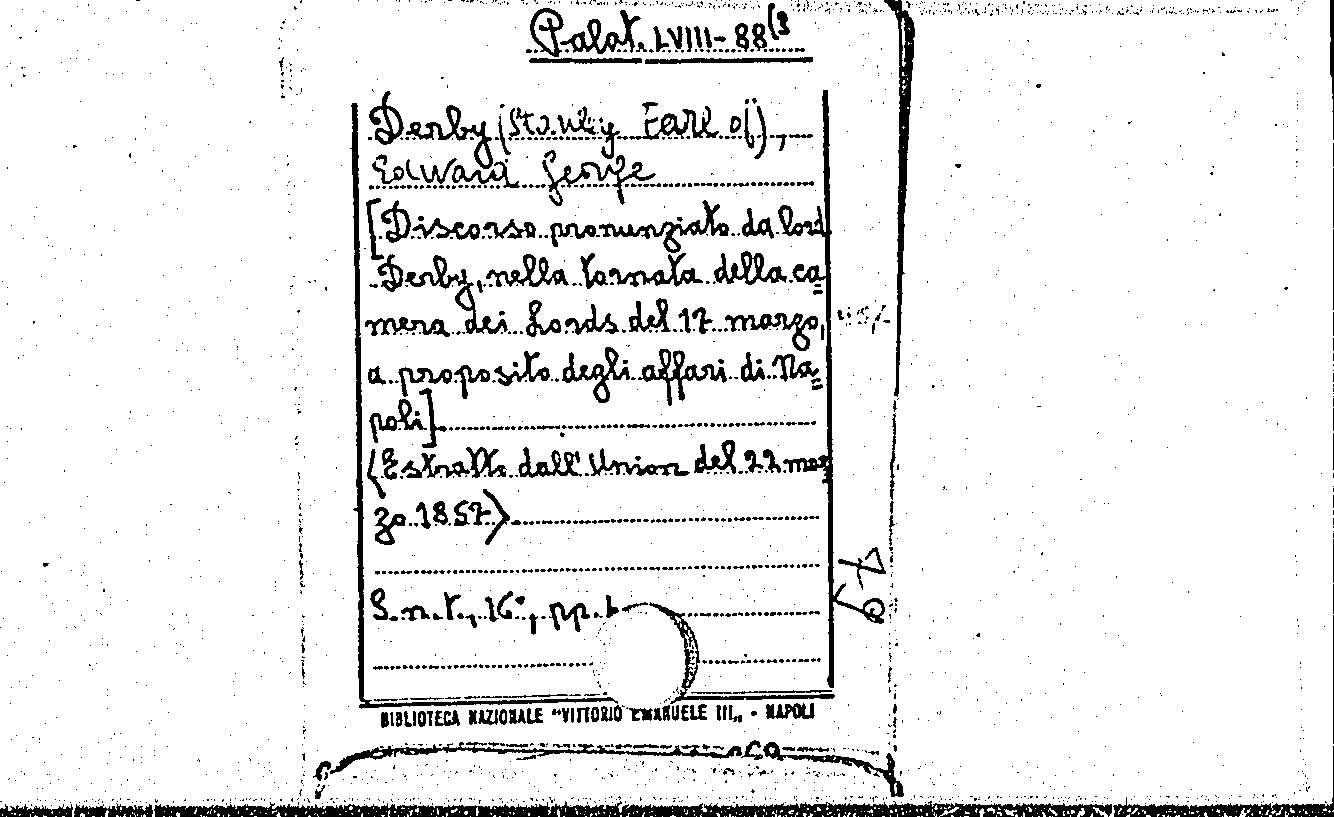 Palat. LVIII-88(3
Derby (Stanley Earl of),
Edward George
[Discorso pronunziato da lord
Derby, nella tornata della ca=
mera dei Lords del 17 marzo,
a proposito degli affari di Na=
poli]
(Estratto dall' Union del 22 mar=
zo 1857)
S.n.t., 16°, pp.
BIBLIOTECA NAZIONALE "VITTORIO EMANUELE III„ - NAPOLI